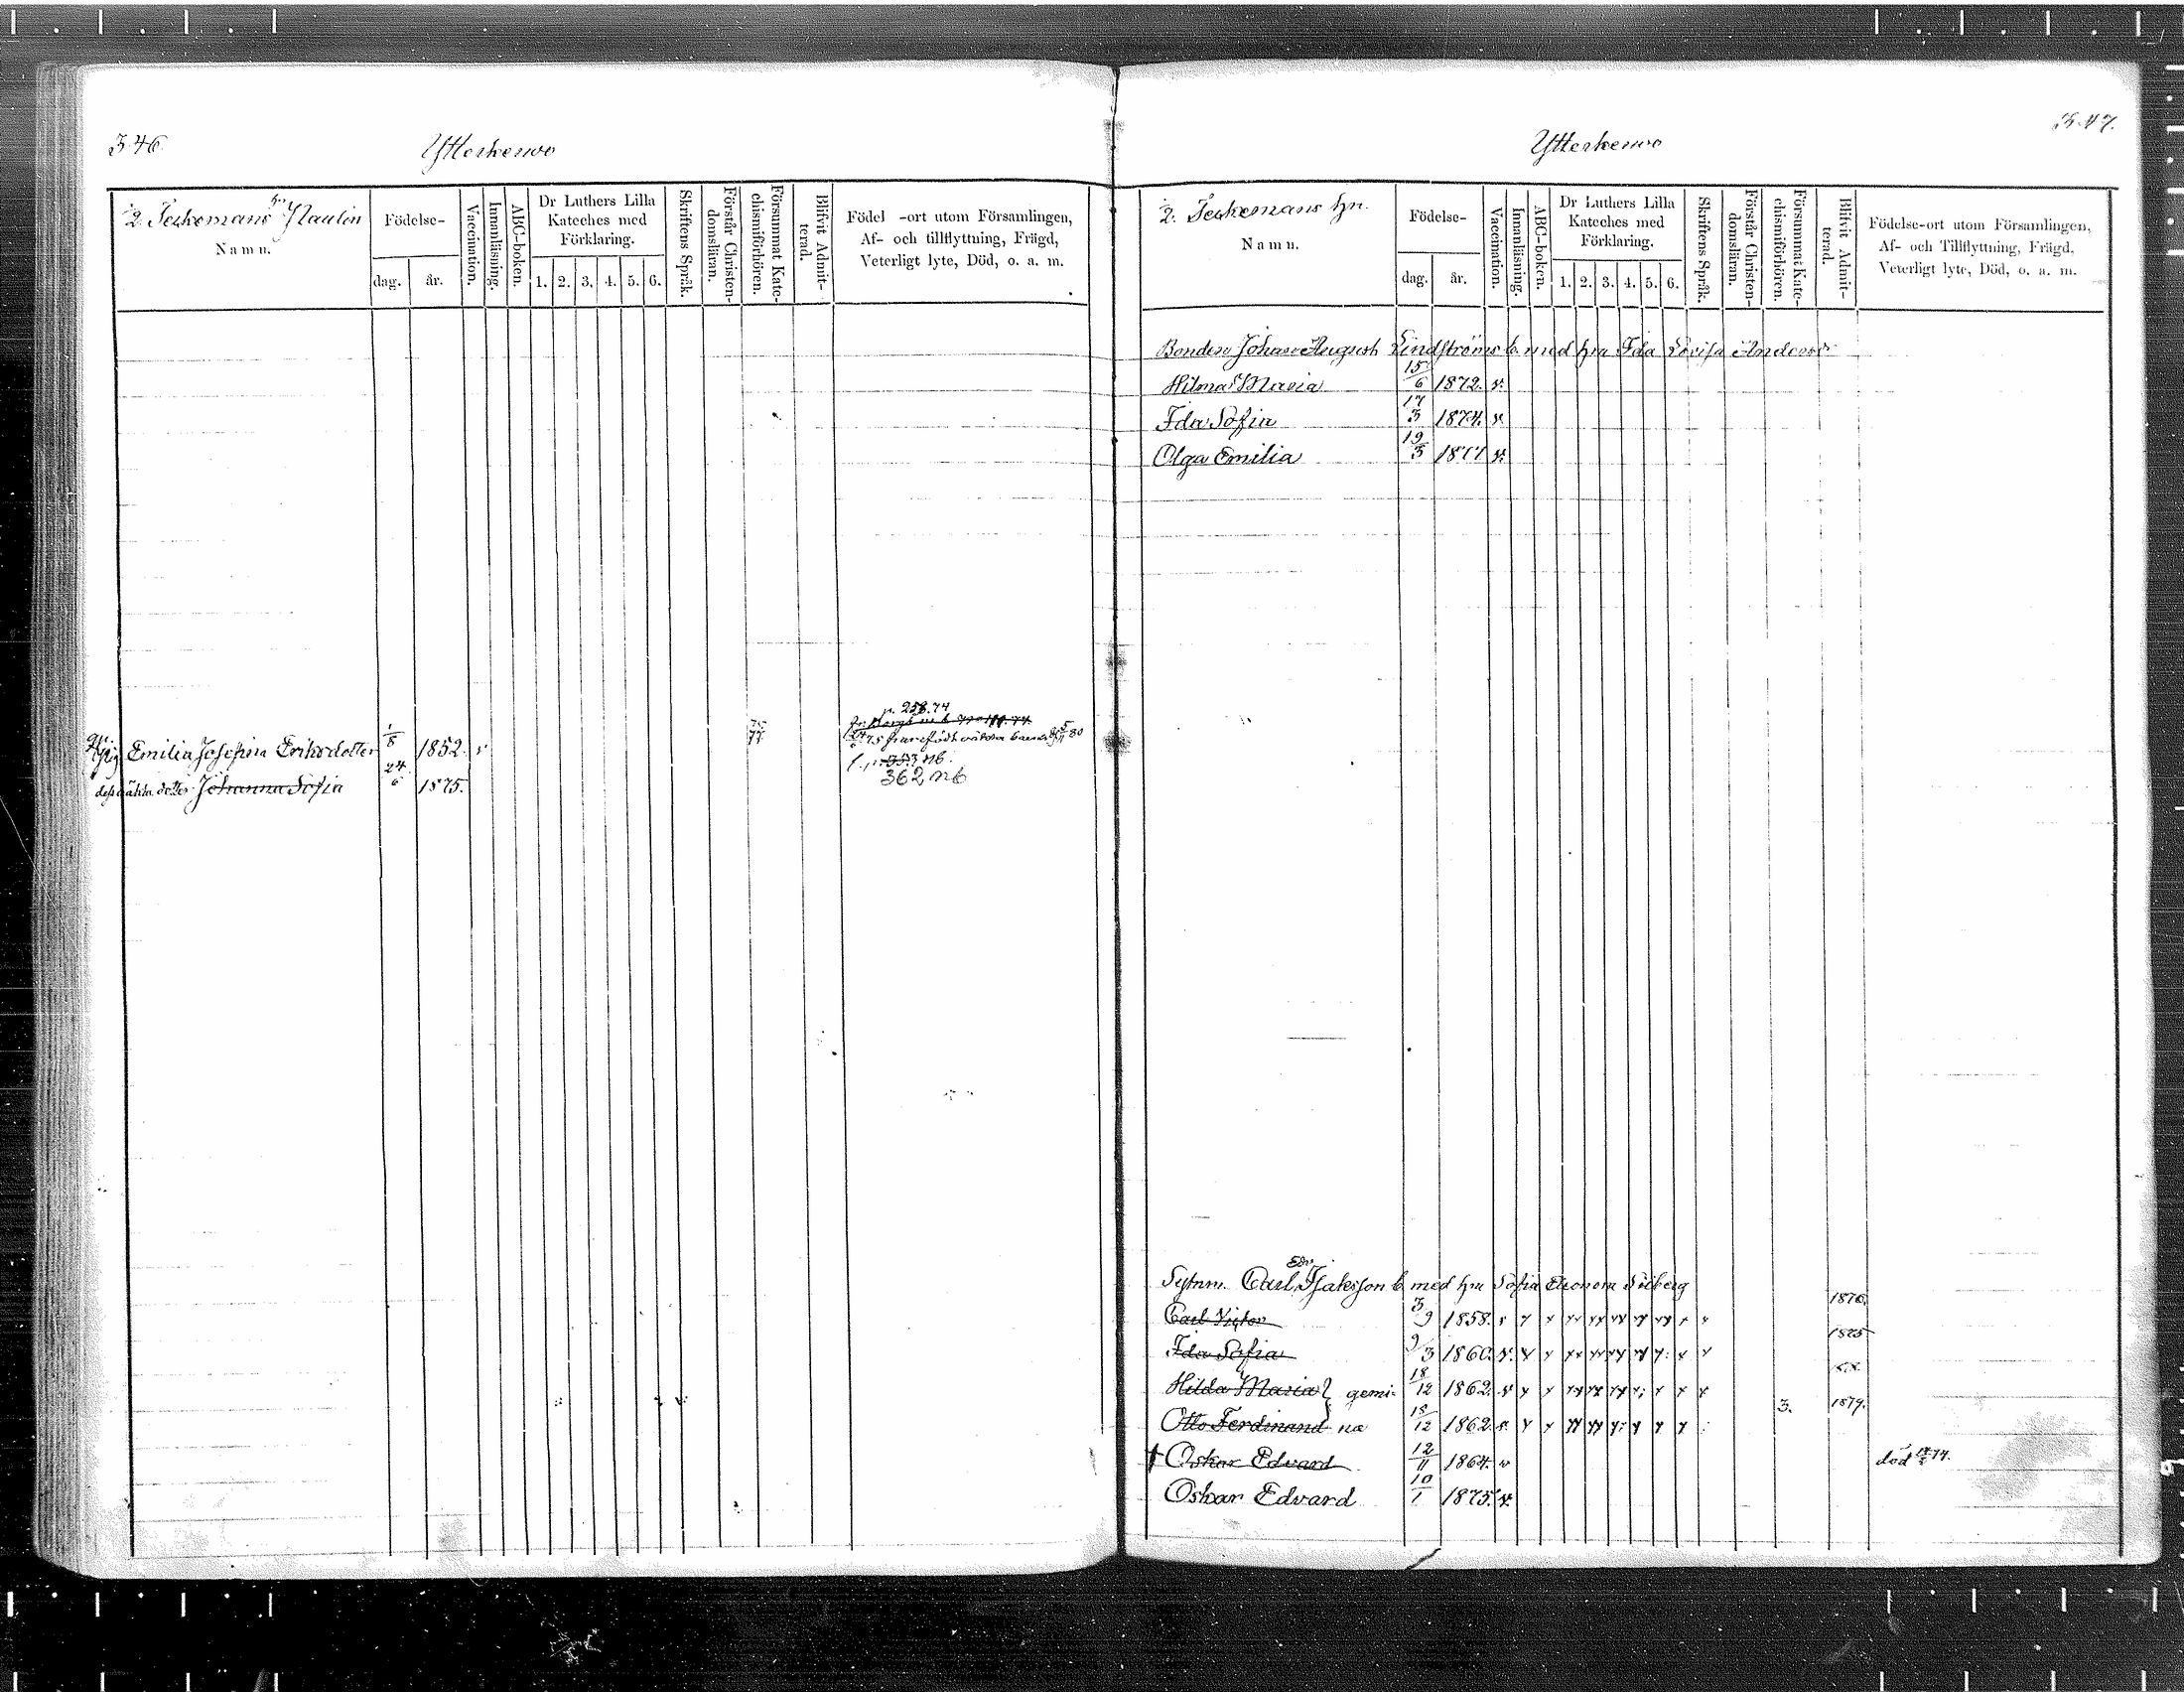 346.
Ytterkervo
2. Jeskemans hn Naulin
Namn.
Födelse-
dag.
år.
Vaccination.
Innanläsning.
ABC-boken.
Dr Luthers Lilla
Kateches med
Förklaring.
1. 2. 3. 4. 5. 6.
Skriftens Språk.
Förstår Christen-
domsläran.
Försummat Kate-
chismiförhören.
Blifvit Admit-
terad.
Födel -ort utom Församlingen,
Af- och tillflyttning, Frägd,
Veterligt lyte, Död, o. a. m.
p. 258.74
Emilia Josefina Eriksdotter 1/8 1852. v 75 77
362 nb
dess oäkta dotter Johanna Sofia 24/6 1875.
347.
Ytterkervo
2. Jeskemans hn.
Namn.
Födelse-
dag.
år.
Vaccination.
Innanläsning.
ABC-boken.
Dr Luthers Lilla
Kateches med
Förklaring.
1. 2. 3. 4. 5. 6.
Skriftens Språk.
Förstår Christen-
domsläran.
Försummat Kate-
chismiförhören.
Blifvit Admit-
terad.
Födelse-ort utom Församlingen,
Af- och Tillflyttning, Frägd,
Veterligt lyte, Död, o. a. m.
Bonden Johan August Lindströms b. med hu Ida Lovisa
Hilma Maria 15/6 1872. v.
Ida Sofia 17/3 1874. v.
Olga Emilia 19/3 1877 v.
Sytnm. Carl Edv Isaksson b med hu Sofia Eleonora
Carl Victor 3/9 1858. v 1876.
Ida Sofia 9/3 1860. v. 1875
Hilda Maria } gemi- 18/12 1862. v
Otto Ferdinand næ 18/12 1862. v. 3. 1879.
† Oskar Edvard 12/11 1864. v död 74.
Oskar Edvard 10/1 1875. v.